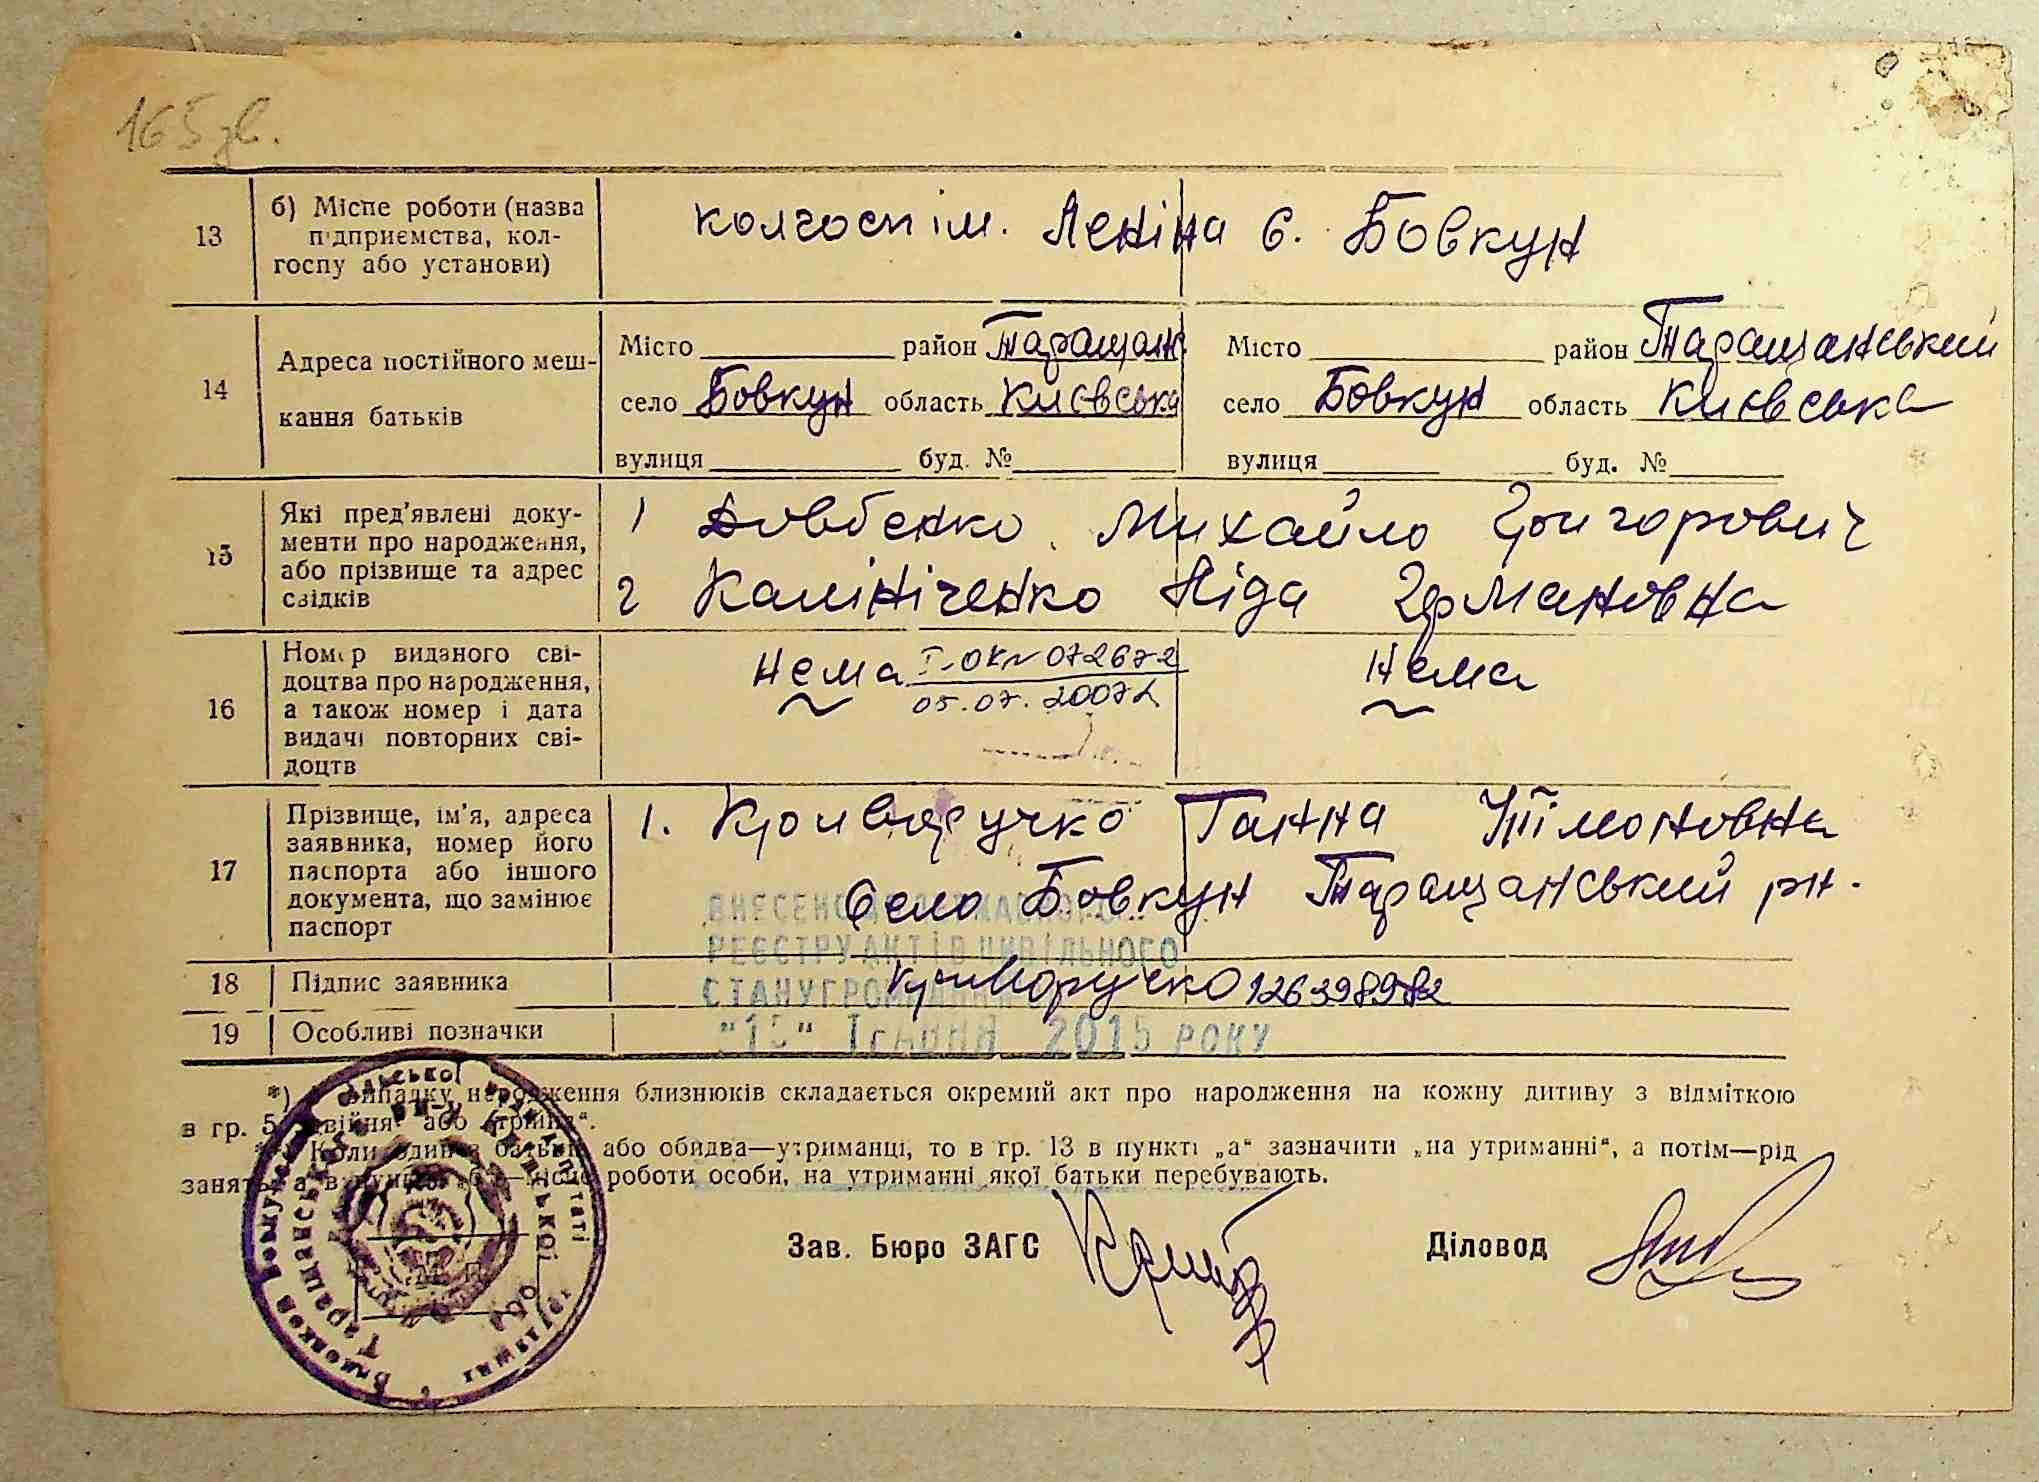 165 зв.
13
б) Місце роботи (назва
підприємства, кол-
госпу або установи)
колгосп ім. Леніна с. Бовкун
14
Адреса постійного меш-
кання батьків
Місто район Таращан
село Бовкун область Києвська
вулиця буд. №
Місто район Таращанський
село Бовкун область Києвська
вулиця буд. №
15
Які пред'явлені доку-
менти про народження,
або прізвище та адрес
свідків
1 Довбенко Михайло Григорович
2 Калініченко Ліда Германовна
16
Номер виданого сві-
доцтва про народження,
а також номер і дата
видачі повторних сві-
доцтв
Нема І-ОК № 072672
05.07.2007
Нема
17
Прізвище, ім'я, адреса
заявника, номер його
паспорта або іншого
документа, що замінює
паспорт
1. Криворучко Ганна Тімоновна
Село Бовкун Таращанський рн.
ВНЕСЕНО ДО ДЕРЖАВНОГО
РЕЄСТРУ АКТІВ ЦИВІЛЬНОГО
СТАНУ ГРОМАДЯН
2015 РОКУ
18
Підпис заявника
Криворучко
19
Особливі позначки
*) У випадку народження близнюків складається окремий акт про народження на кожну дитину з відміткою
в гр. 5 „двійня“ або „трійня“.
Коли один з батьків або обидва—утриманці, то в гр. 13 в пункті „а“ зазначити „на утриманні“, а потім—рід
занять, а в пункті „б“—місце роботи особи, на утриманні якої батьки перебувають.
Зав. Бюро ЗАГС
Діловод